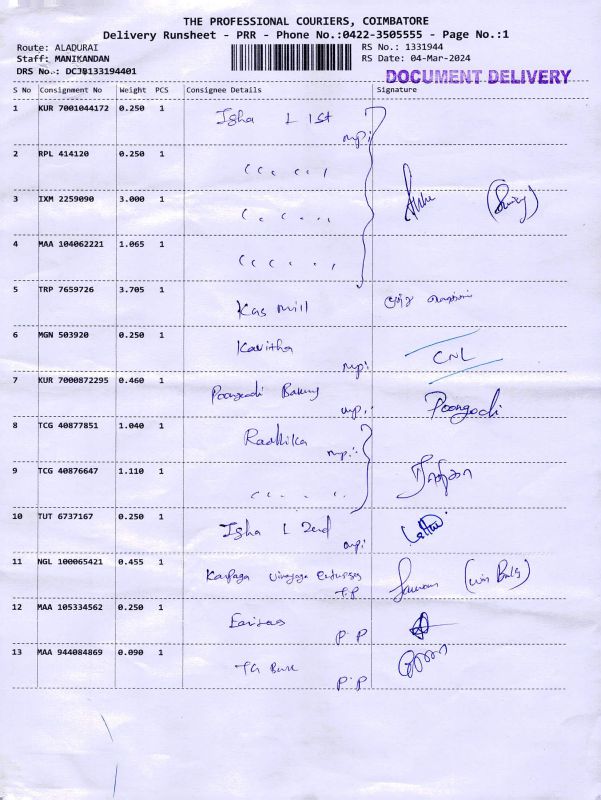 THE PROFESSIONAL COURIERS, COIMBATORE
Delivery Runsheet - PRR - Phone No.:0422-3505555 - Page No.:1
Route: ALADURAI RS No.: 1331944
Staff: MANIKANDAN RS Date: 04-Mar-2024
DRS No.: DCJB133194401 DOCUMENT DELIVERY
S No Consignment No Weight PCS Consignee Details Signature
1 KUR 7001044172 0.250 1 Isha L 1st
mp:
2 RPL 414120 0.250 1
3 IXM 2259090 3.000 1
4 MAA 104062221 1.065 1
5 TRP 7659726 3.705 1 Kas Mill
6 MGN 503920 0.250 1 Kavitha
mp: CNL
7 KUR 7000872295 0.460 1 Poongodi
mp: Poongodi
8 TCG 40877851 1.040 1 Radhika
mp:
9 TCG 40876647 1.110 1 ராதிகா
10 TUT 6737167 0.250 1 Isha L 2nd
mp:
11 NGL 100065421 0.455 1 Karpaga Vinayaga
P.P
12 MAA 105334562 0.250 1
P.P
13 MAA 944084869 0.090 1
P.P